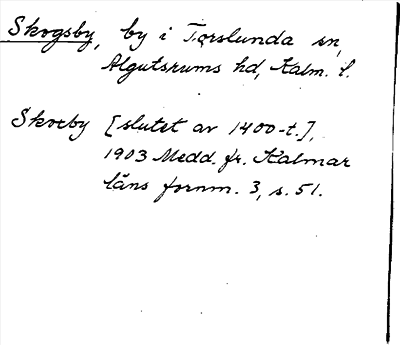 Skogsby, by i Torslunda sn,
Algutsrums hd, Kalm. l.
Skoeby [slutet av 1400-t.],
1903 Medd. fr. Kalmar
läns fornm. 3, s. 51.